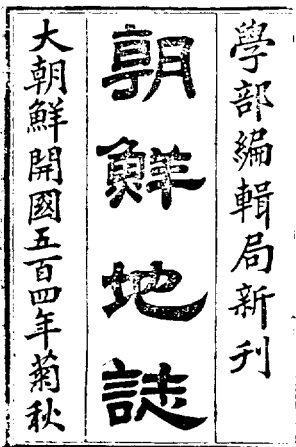 學部編輯局新刊
朝鮮地誌
大朝鮮開國五百四年菊秋